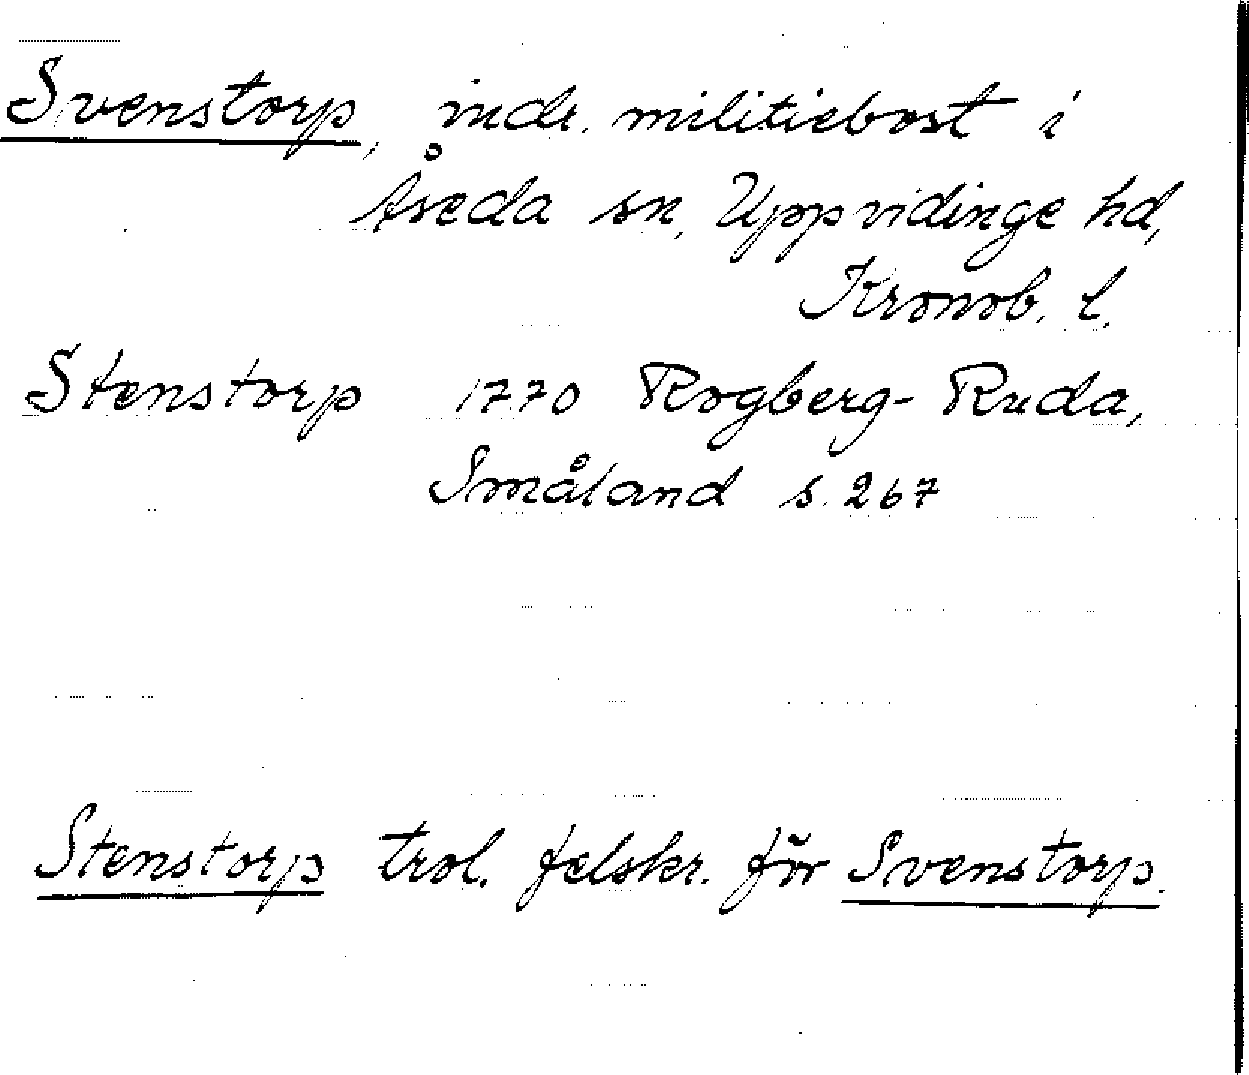 Svenstorp, indr. militiebost i
Åseda sn, Uppvidinge hd,
Kronob. l.
Stenstorp 1770 Rogberg-Ruda,
Småland s. 267
Stenstorp trol. felskr. för Svenstorp.